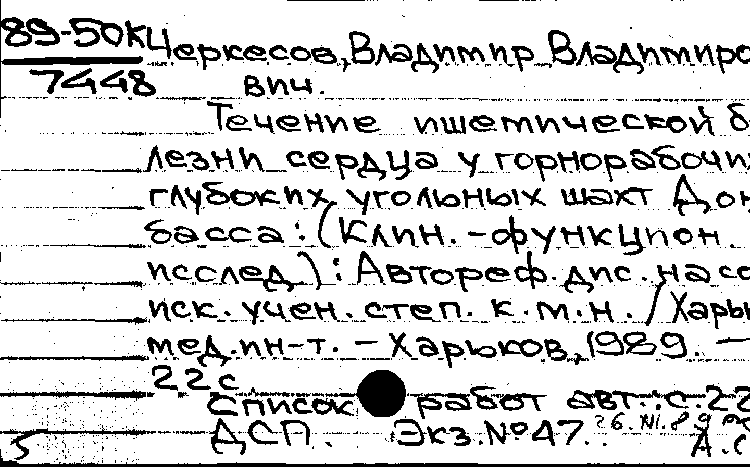 89-50К Черкесов, Владимир Владимиро
7448 вич.
Течение ишемической б
лезни сердца у горнорабочи
глубоких угольных шахт Дон
басса: (Клин.-функцион
исслед.): Автореф. дис. на со
иск. учен. степ. к.м.н. / Харь
мед. ин-т. - Харьков, 1989. -
22 с.
Список работ авт.: с. 22
ДСП. Экз. №47. 26.XI.89
5 А.С